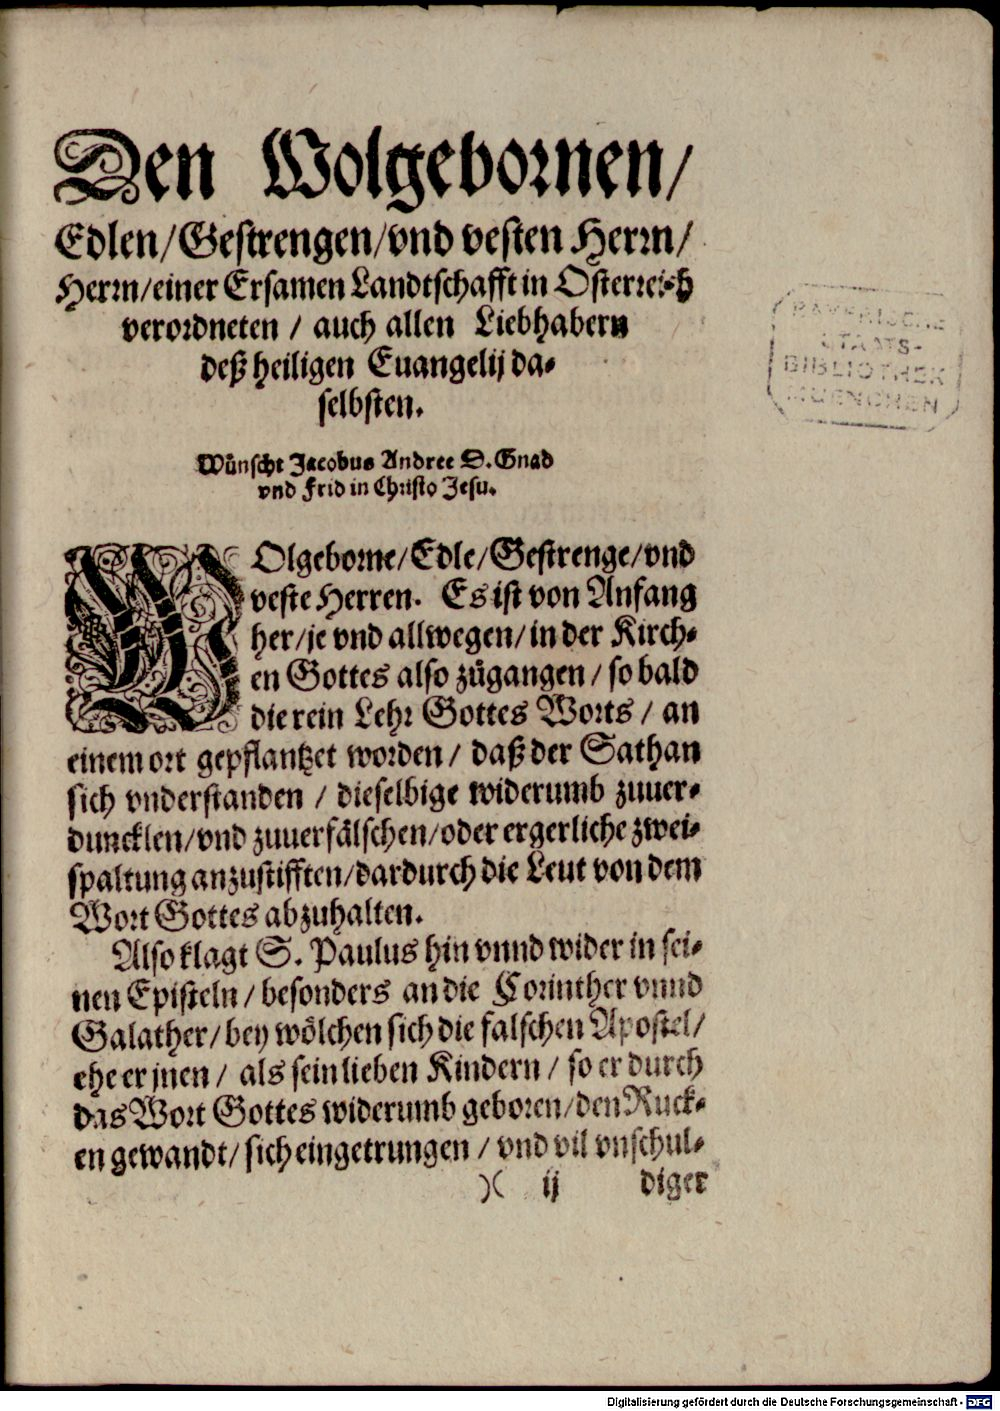 Den Wolgebornen/
Edlen/Gestrengen/vnd vesten Herrn/
Herrn/einer Ersamen Landtschafft in Osterreich
verordneten / auch allen Liebhabern
deß heiligen Euangelij da-
selbsten.
Wünscht Jacobus Andree D. Gnad
vnd Frid in Christo Jesu.
WOlgeborne/Edle/Gestrenge/vnd
veste Herren. Es ist von Anfang
her/je vnd allwegen/in der Kirch-
en Gottes also zůgangen / so bald
die rein Lehr Gottes Worts / an
einem ort gepflantzet worden / daß der Sathan
sich vnderstanden / dieselbige widerumb zuuer-
duncklen/vnd zuuerfälschen/oder ergerliche zwei-
spaltung anzustifften/dardurch die Leut von dem
Wort Gottes abzuhalten.
Also klagt S. Paulus hin vnnd wider in sei-
nen Episteln / besonders an die Corinther vnnd
Galather/ bey wölchen sich die falschen Apostel/
ehe er jnen / als sein lieben Kindern / so er durch
das Wort Gottes widerumb geboren/den Ruck-
en gewandt/ sich eingetrungen / vnd vil vnschul-
)( ij diger
BAYERISCHE
STAATS-
BIBLIOTHEK
MUENCHEN
Digitalisierung gefördert durch die Deutsche Forschungsgemeinschaft - DFG